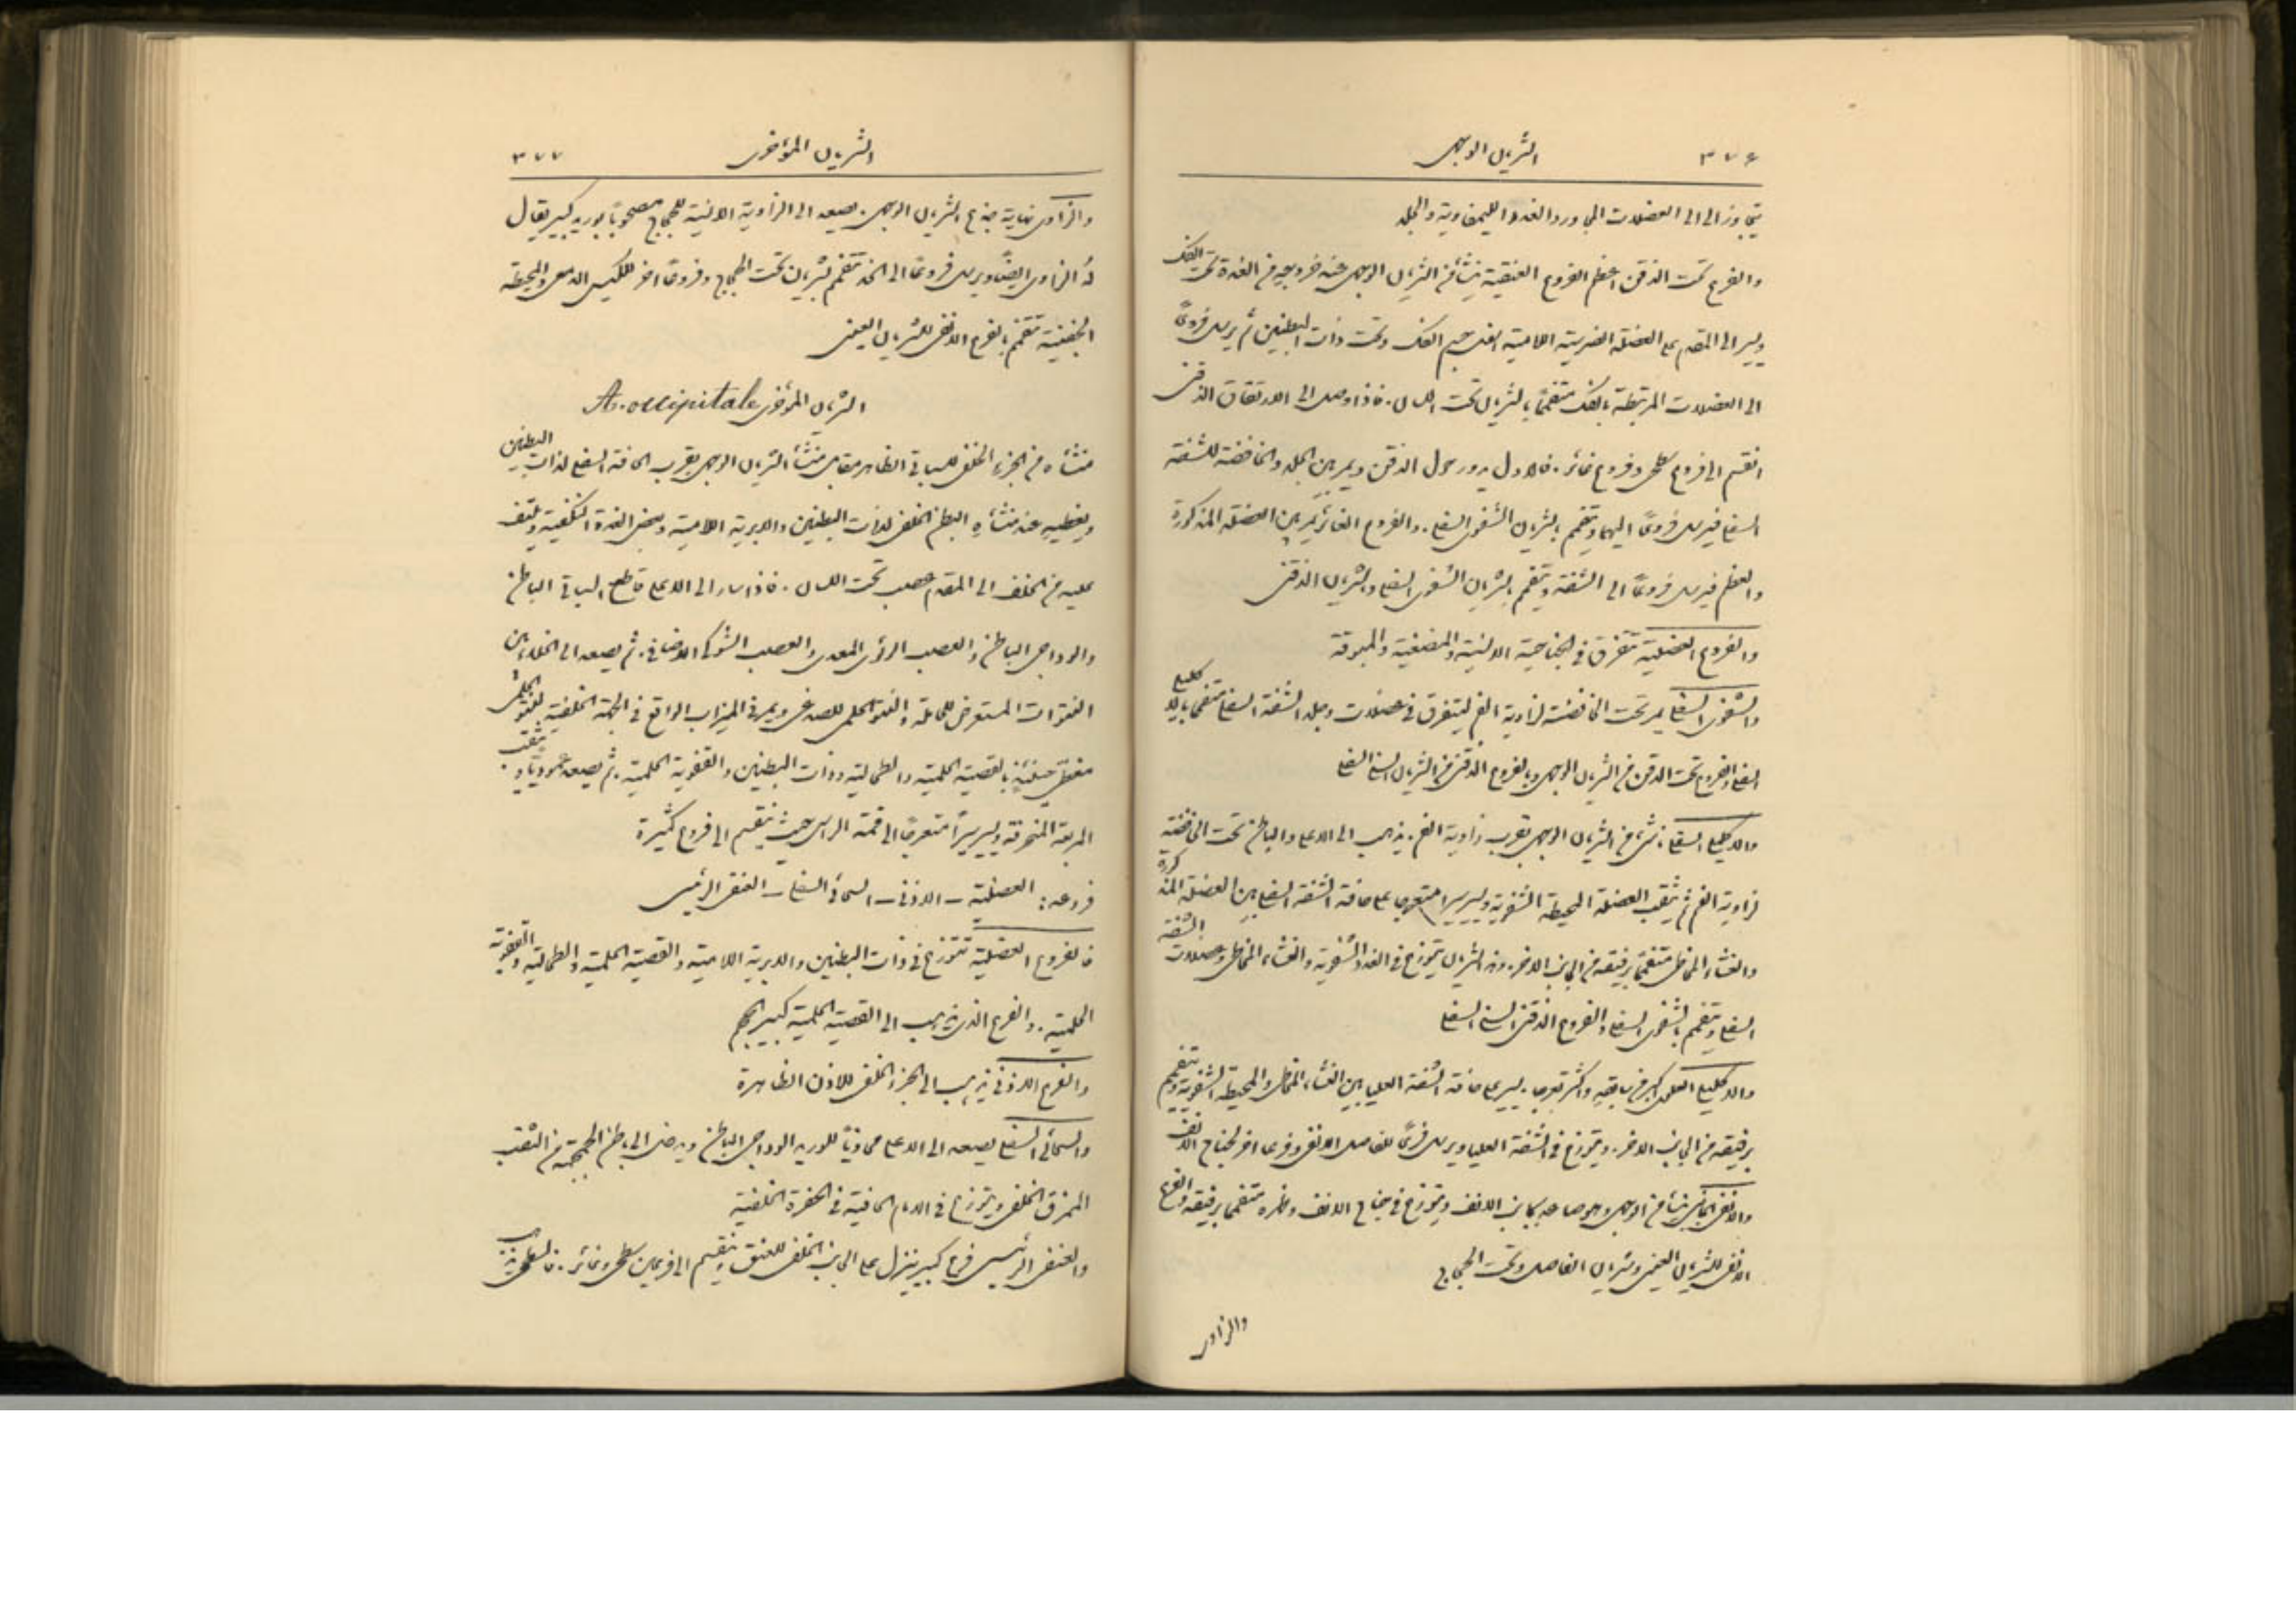 ٣٧٦ الشريان الوجهي
يتجاوز الى الى العضلات المجاورة والغدد الليمفاوية والجلد
والفرع تحت الذقن اعظم الفروع العنقية ينشأ من الشريان الوجهي عند خروجه من الغدة تحت الفك
ويسير الى المقدم على العضلة الضرسية اللامية جسم الفك وتحت ذات البطنين ثم يرسل فروعًا
الى العضلات المرتبطة بالفك متفممًا بالشريان تحت اللسان. فاذا وصل الى الارتفاق الذقني
انقسم الى فروع سطحي وفروع غائر. فالاول يدور حول الذقن ويمر بين الجلد والخافضة للشفة
السفلى فيرسل فروعًا اليهما ويتفمم بالشريان الشفوي السفلي. والفروع الغائر يمر بين العضلة المذكورة
والعظم فيرسل فروعًا الى الشفة ويتفمم بالشريان الشفوي السفلي وبالشريان الذقني
والفروع العضلية تتفرق في الجناحية الانسية والمضغية والمبوقة
والشفوي السفلي يمر تحت الخافضة لزاوية الفم ليتفرق في عضلات وجلد الشفة السفلى متفمما بالاكليلي
السفلي والفروع تحت الذقن من الشريان الوجهي وبالفروع الذقني من الشريان السني السفلي
والاكليلي السفلي ينشأ من الشريان الوجهي بقرب زاوية الفم. يذهب الى الاعلى والباطن تحت الخافضة
لزاوية الفم ثم يثقب العضلة المحيطة الشفوية ويسير سيرا متعرجا على حافة الشفة السفلى بين العضلة المذكورة
والغشاء المخاطي متفممًا برفيقه من الجانب الاخر. وهذا الشريان يتوزع في الغدد الشفوية والغشاء المخاطي وعضلات الشفة
السفلى ويتفمم بالشفوي السفلي والفروع الذقني السني السفلي
والاكليلي العلوي اكبر من سابقه واكثر تعرجا. يسير على حافة الشفة العليا بين الغشاء المخاطي والمحيطة الشفوية ويتفمم
برفيقه من الجانب الاخر. ويتوزع في الشفة العليا ويرسل فرعًا للفاصل الانفي وفرعا اخر لجناح الانف
والانفي الجانبي ينشأ من الوجهي وهو صاعد بجانب الانف ويتوزع في جناح الانف وظهره متفمما برفيقه والفرع
الانفي للشريان العيني وشريان الفاصل وتحت الحجاج
والزاوي
الشريان المؤخري ٣٧٧
والزاوي نهاية جذع الشريان الوجهي. يصعد الى الزاوية الانسية للحجاج مصحوبًا بوريد كبير يقال
لهُ الزاوي ايضًا ويرسل فروعًا الى الخد تتفمم بشريان تحت الحجاج وفروعًا اخر للكيس الدمعي والمحيطة
الجفنية تتفمم بالفرع الانفي للشريان العيني
الشريان المؤخري A. occipitale
منشأه من الجزء الخلفي للسباتي الظاهر مقابل منشأ الشريان الوجهي بقرب الحافة السفلى لذات البطنين
ويغطيه عند منشأه البطن الخلفي لذات البطنين والابرية اللامية وبعض الغدة النكفية ويلتف
عليه من الخلف الى المقدم عصب تحت اللسان. فاذا سار الى الاعلى قاطع السباتي الباطن
والوداجي الباطن والعصب الرئوي المعدي والعصب الشوكي الاضافي. ثم يصعد الى الخلاء بين
النتوات المستعرض للحاملة والنتو الحلمي للصدغي ويمر في الميزاب الواقع في الجهة الخلفية للنتو الحلمي
مغطى حينئذٍ بالقصية الحلمية والطحالية وذات البطنين والقفوية الحلمية. ثم يصعد عموديًا ويثقب
المربعة المنحرفة ويسير سيرًا متعرجًا الى قمة الراس حيث ينقسم الى فروع كثيرة
فروعه: العضلية – الاذني – السحائي السفلي – العنقي الرئيسي
فالفروع العضلية تتوزع في ذات البطنين والابرية اللامية والقصية الحلمية والطحالية والقفوية
الحلمية. والفرع الذي يذهب الى القصية الحلمية كبير الحجم
والفرع الاذني يذهب الى الجزء الخلفي للاذن الظاهرة
والسحائي السفلي يصعد الى الاعلى محاذيًا للوريد الوداجي الباطن ويدخل الى باطن الجمجمة من الثقب
الممزق الخلفي ويتوزع في الام الجافية في الحفرة الخلفية
والعنقي الرئيسي فرع كبير ينزل على الجانب الخلفي للعنق وينقسم الى فرعين سطحي وغائر. فالسطحي يذهب